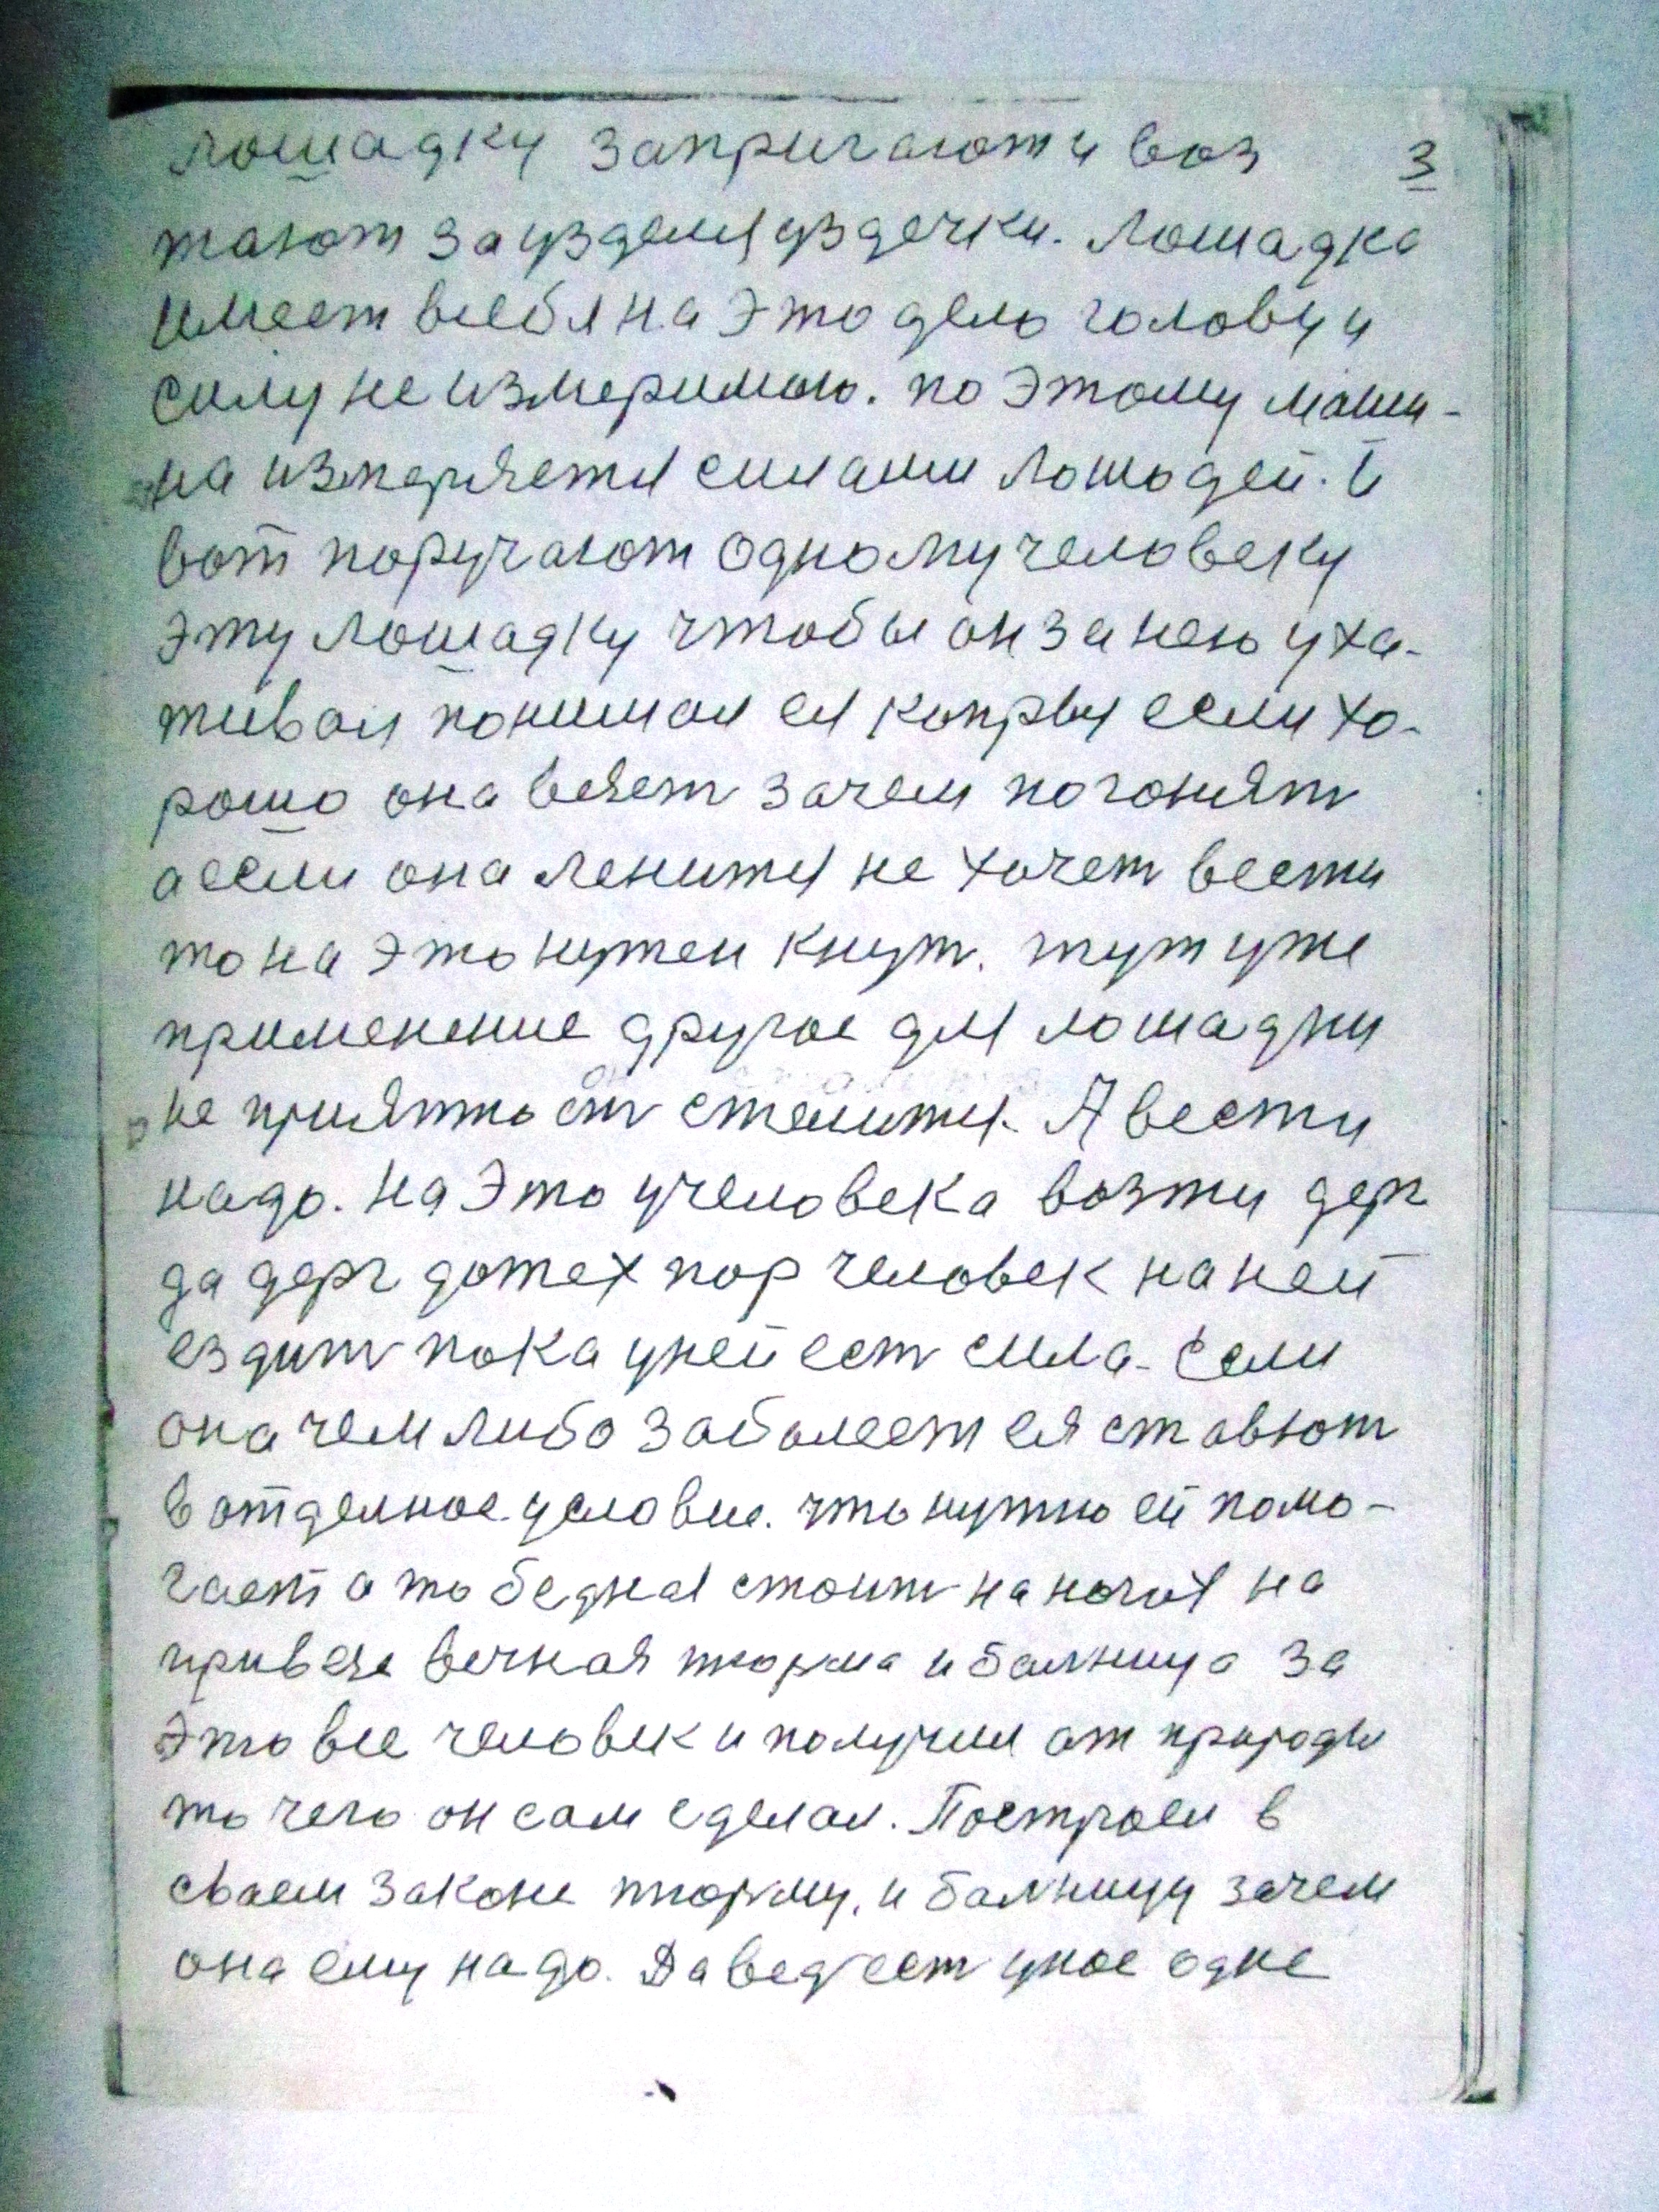 лошадку запригают и воз 3
тают за узделя уздечки. Лошадка
имеет всебя на это дело голову и
силу не измеримою. по этому маши-
на измеряетя силами лошодей. И
вот поручают одному человеку
эту лошадку чтобы он за нею уха-
тивал понимал ея капрвы если хо-
рошо она везет зачем погонят
а если она ленитя не хочет вести
то на это нужен кнут. тут уже
применение другое для лошадки
не приятно от стегитя. А вести
надо. на Это учеловека возти дерг
да дерг дотех пор человек наней
ездит пока уней ест сила. Если
она чем либо заболеет ея ставют
в отделное условие. что нужно ей помо-
гает а то бедная стоит на ногах на
привезе вечная тюрма и балница за
Это все человек и получил от природы
то чего он сам сделал. Построел в
сваем законе тюрму, и балницу зачем
она ему надо. Да вед ест иное одне